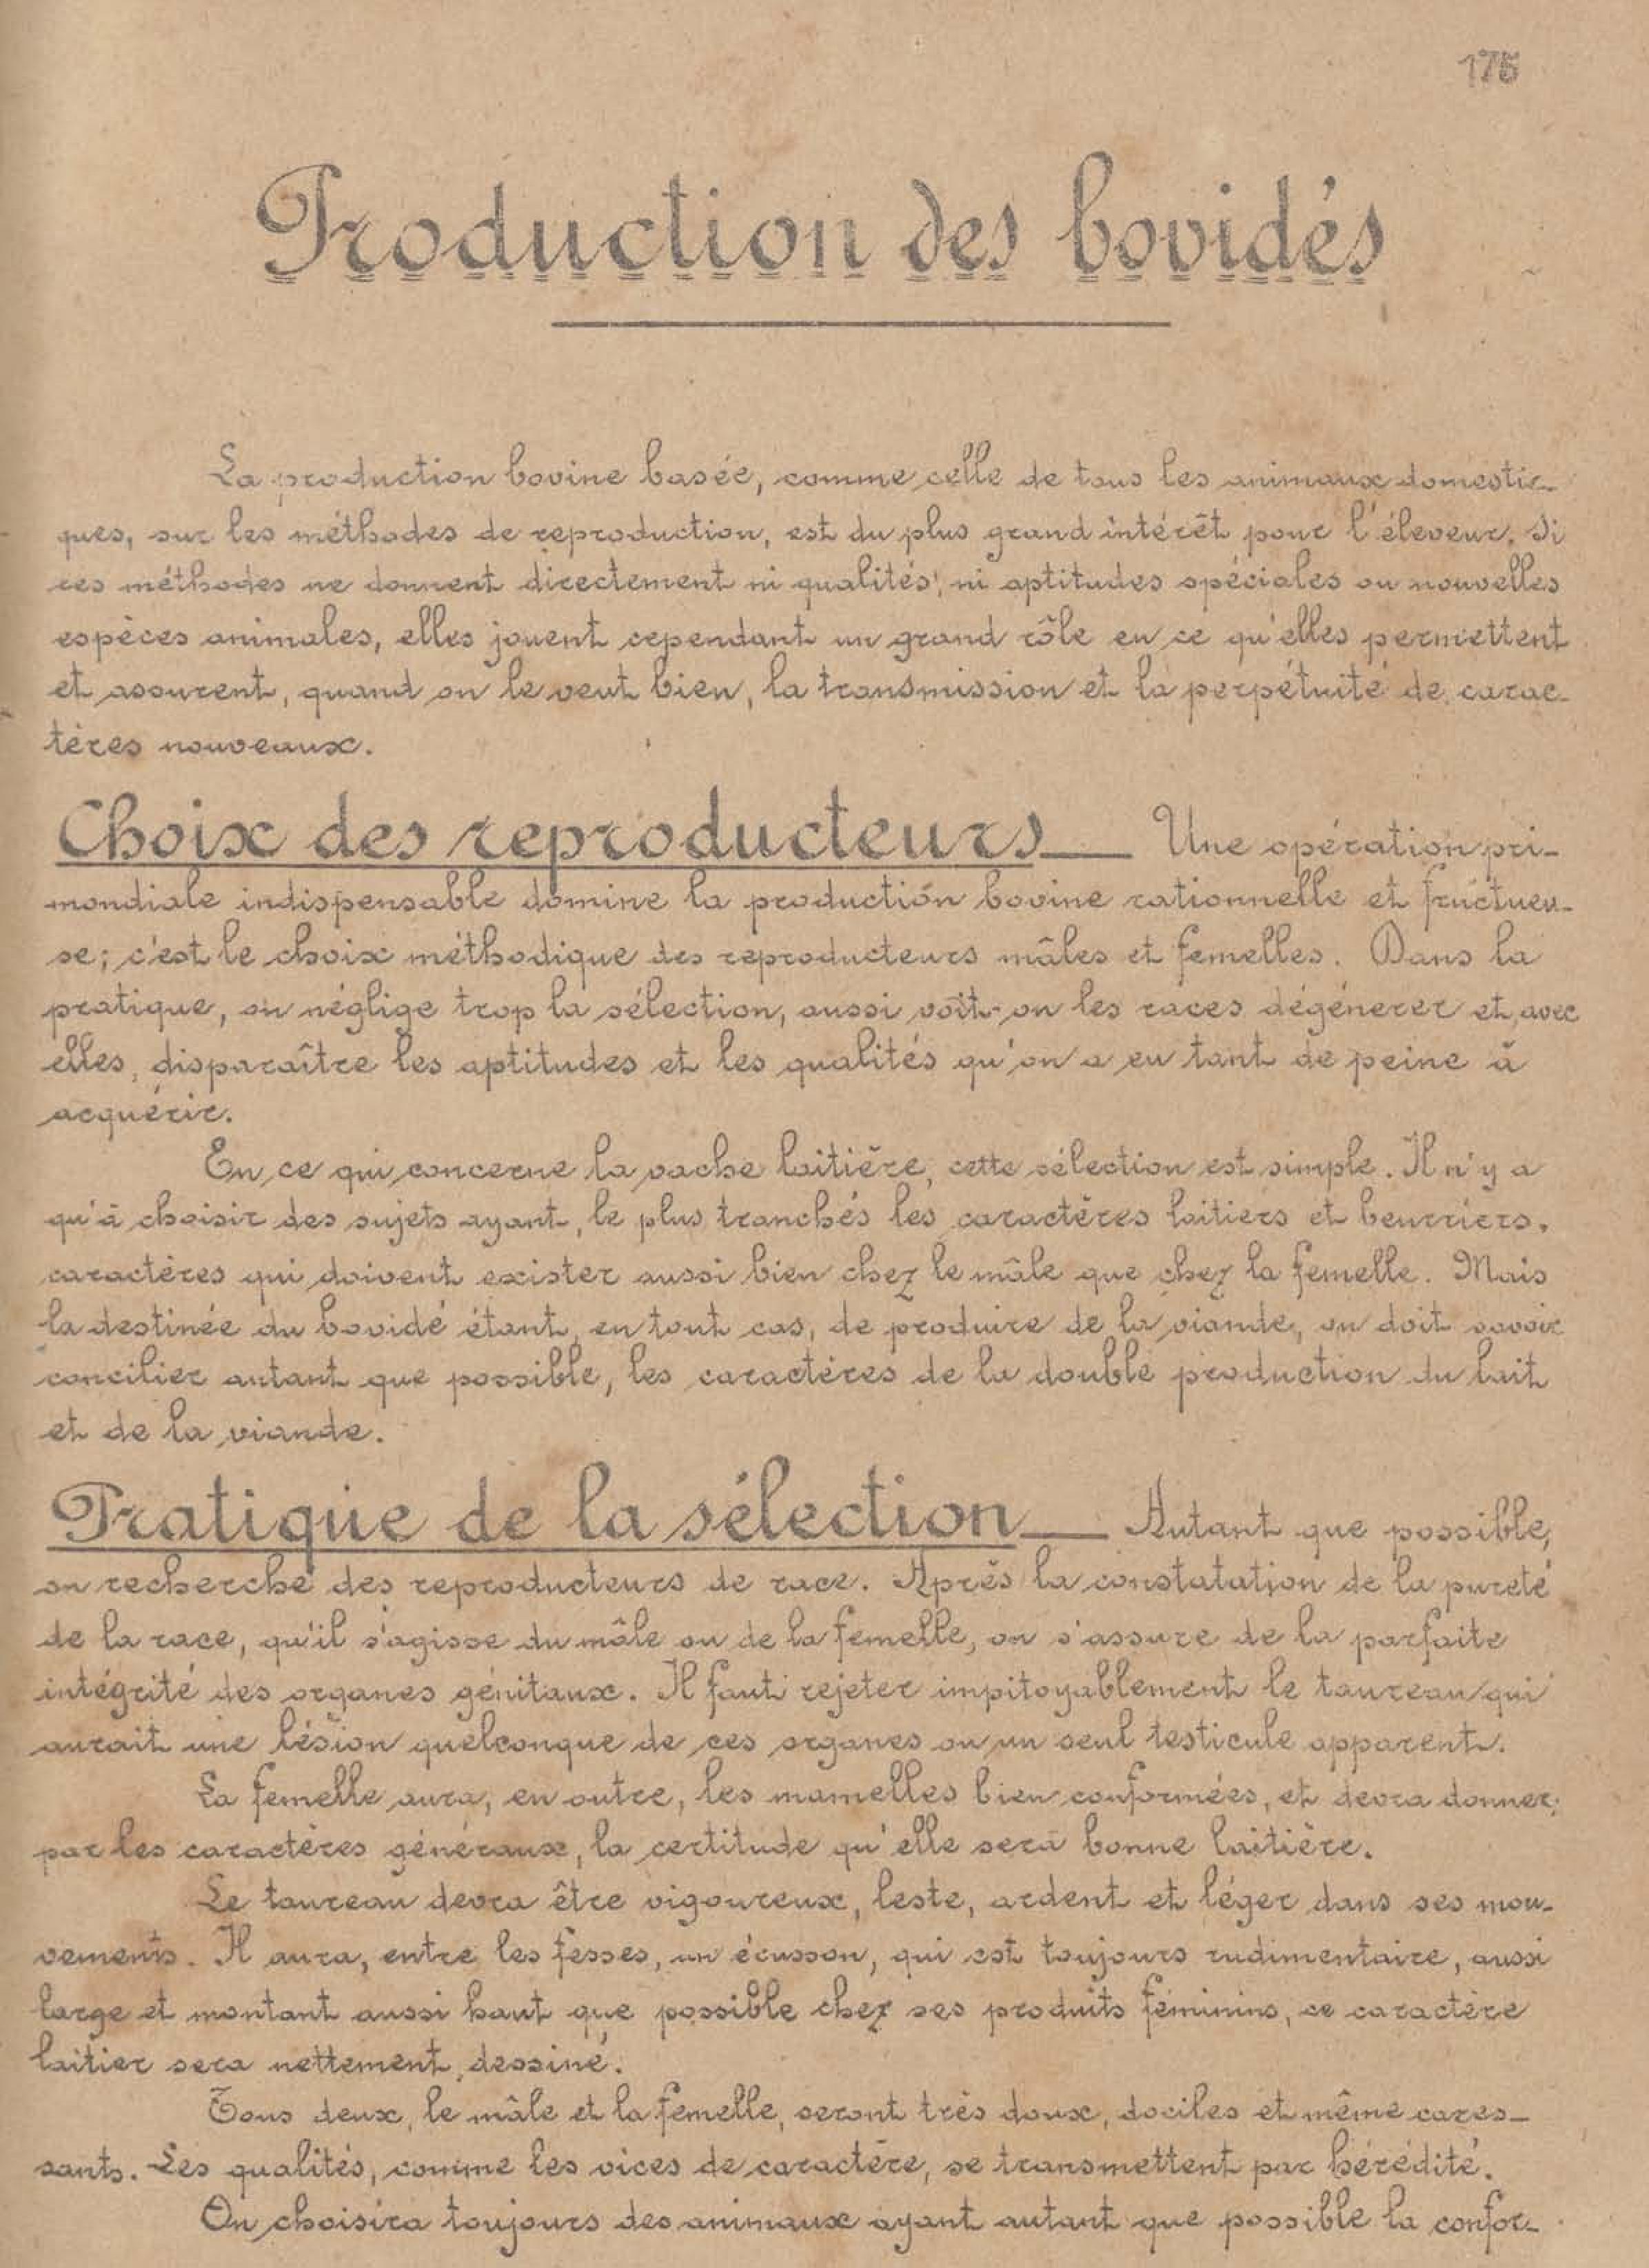 175
Production des bovidés
La production bovine basée, comme celle de tous les animaux domesti-
ques, sur les méthodes de reproduction, est du plus grand intérêt pour l'éleveur. Si
ces méthodes ne donnent directement ni qualités, ni aptitudes spéciales ou nouvelles
espèces animales, elles jouent cependant un grand rôle en ce qu'elles permettent
et assurent, quand on le veut bien, la transmission et la perpétuité de carac-
tères nouveaux.
Choix des reproducteurs — Une opération pri-
mondiale indispensable domine la production bovine rationnelle et fructueu-
se; c'est le choix méthodique des reproducteurs mâles et femelles. Dans la
pratique, on néglige trop la sélection, aussi voit-on les races dégénérer et, avec
elles, disparaître les aptitudes et les qualités qu'on a eu tant de peine à
acquérir.
En ce qui concerne la vache laitière, cette sélection est simple. Il n'y a
qu'à choisir des sujets ayant, le plus tranchés les caractères laitiers et beurriers,
caractères qui doivent exister aussi bien chez le mâle que chez la femelle. Mais
la destinée du bovidé étant, en tout cas, de produire de la viande, on doit savoir
concilier autant que possible, les caractères de la double production du lait
et de la viande.
Pratique de la sélection — Autant que possible,
on recherche des reproducteurs de race. Après la constatation de la pureté
de la race, qu'il s'agisse du mâle ou de la femelle, on s'assure de la parfaite
intégrité des organes génitaux. Il faut rejeter impitoyablement le taureau qui
aurait une lésion quelconque de ces organes ou un seul testicule apparent.
La femelle aura, en outre, les mamelles bien conformées, et devra donner,
par les caractères généraux, la certitude qu'elle sera bonne laitière.
Le taureau devra être vigoureux, leste, ardent et léger dans ses mou-
vements. Il aura, entre les fesses, un écusson, qui est toujours rudimentaire, aussi
large et montant aussi haut que possible chez ses produits féminins, ce caractère
laitier sera nettement dessiné.
Tous deux, le mâle et la femelle, seront très doux, dociles et même cares-
sants. Les qualités, comme les vices de caractère, se transmettent par hérédité.
On choisira toujours des animaux ayant autant que possible la confor-